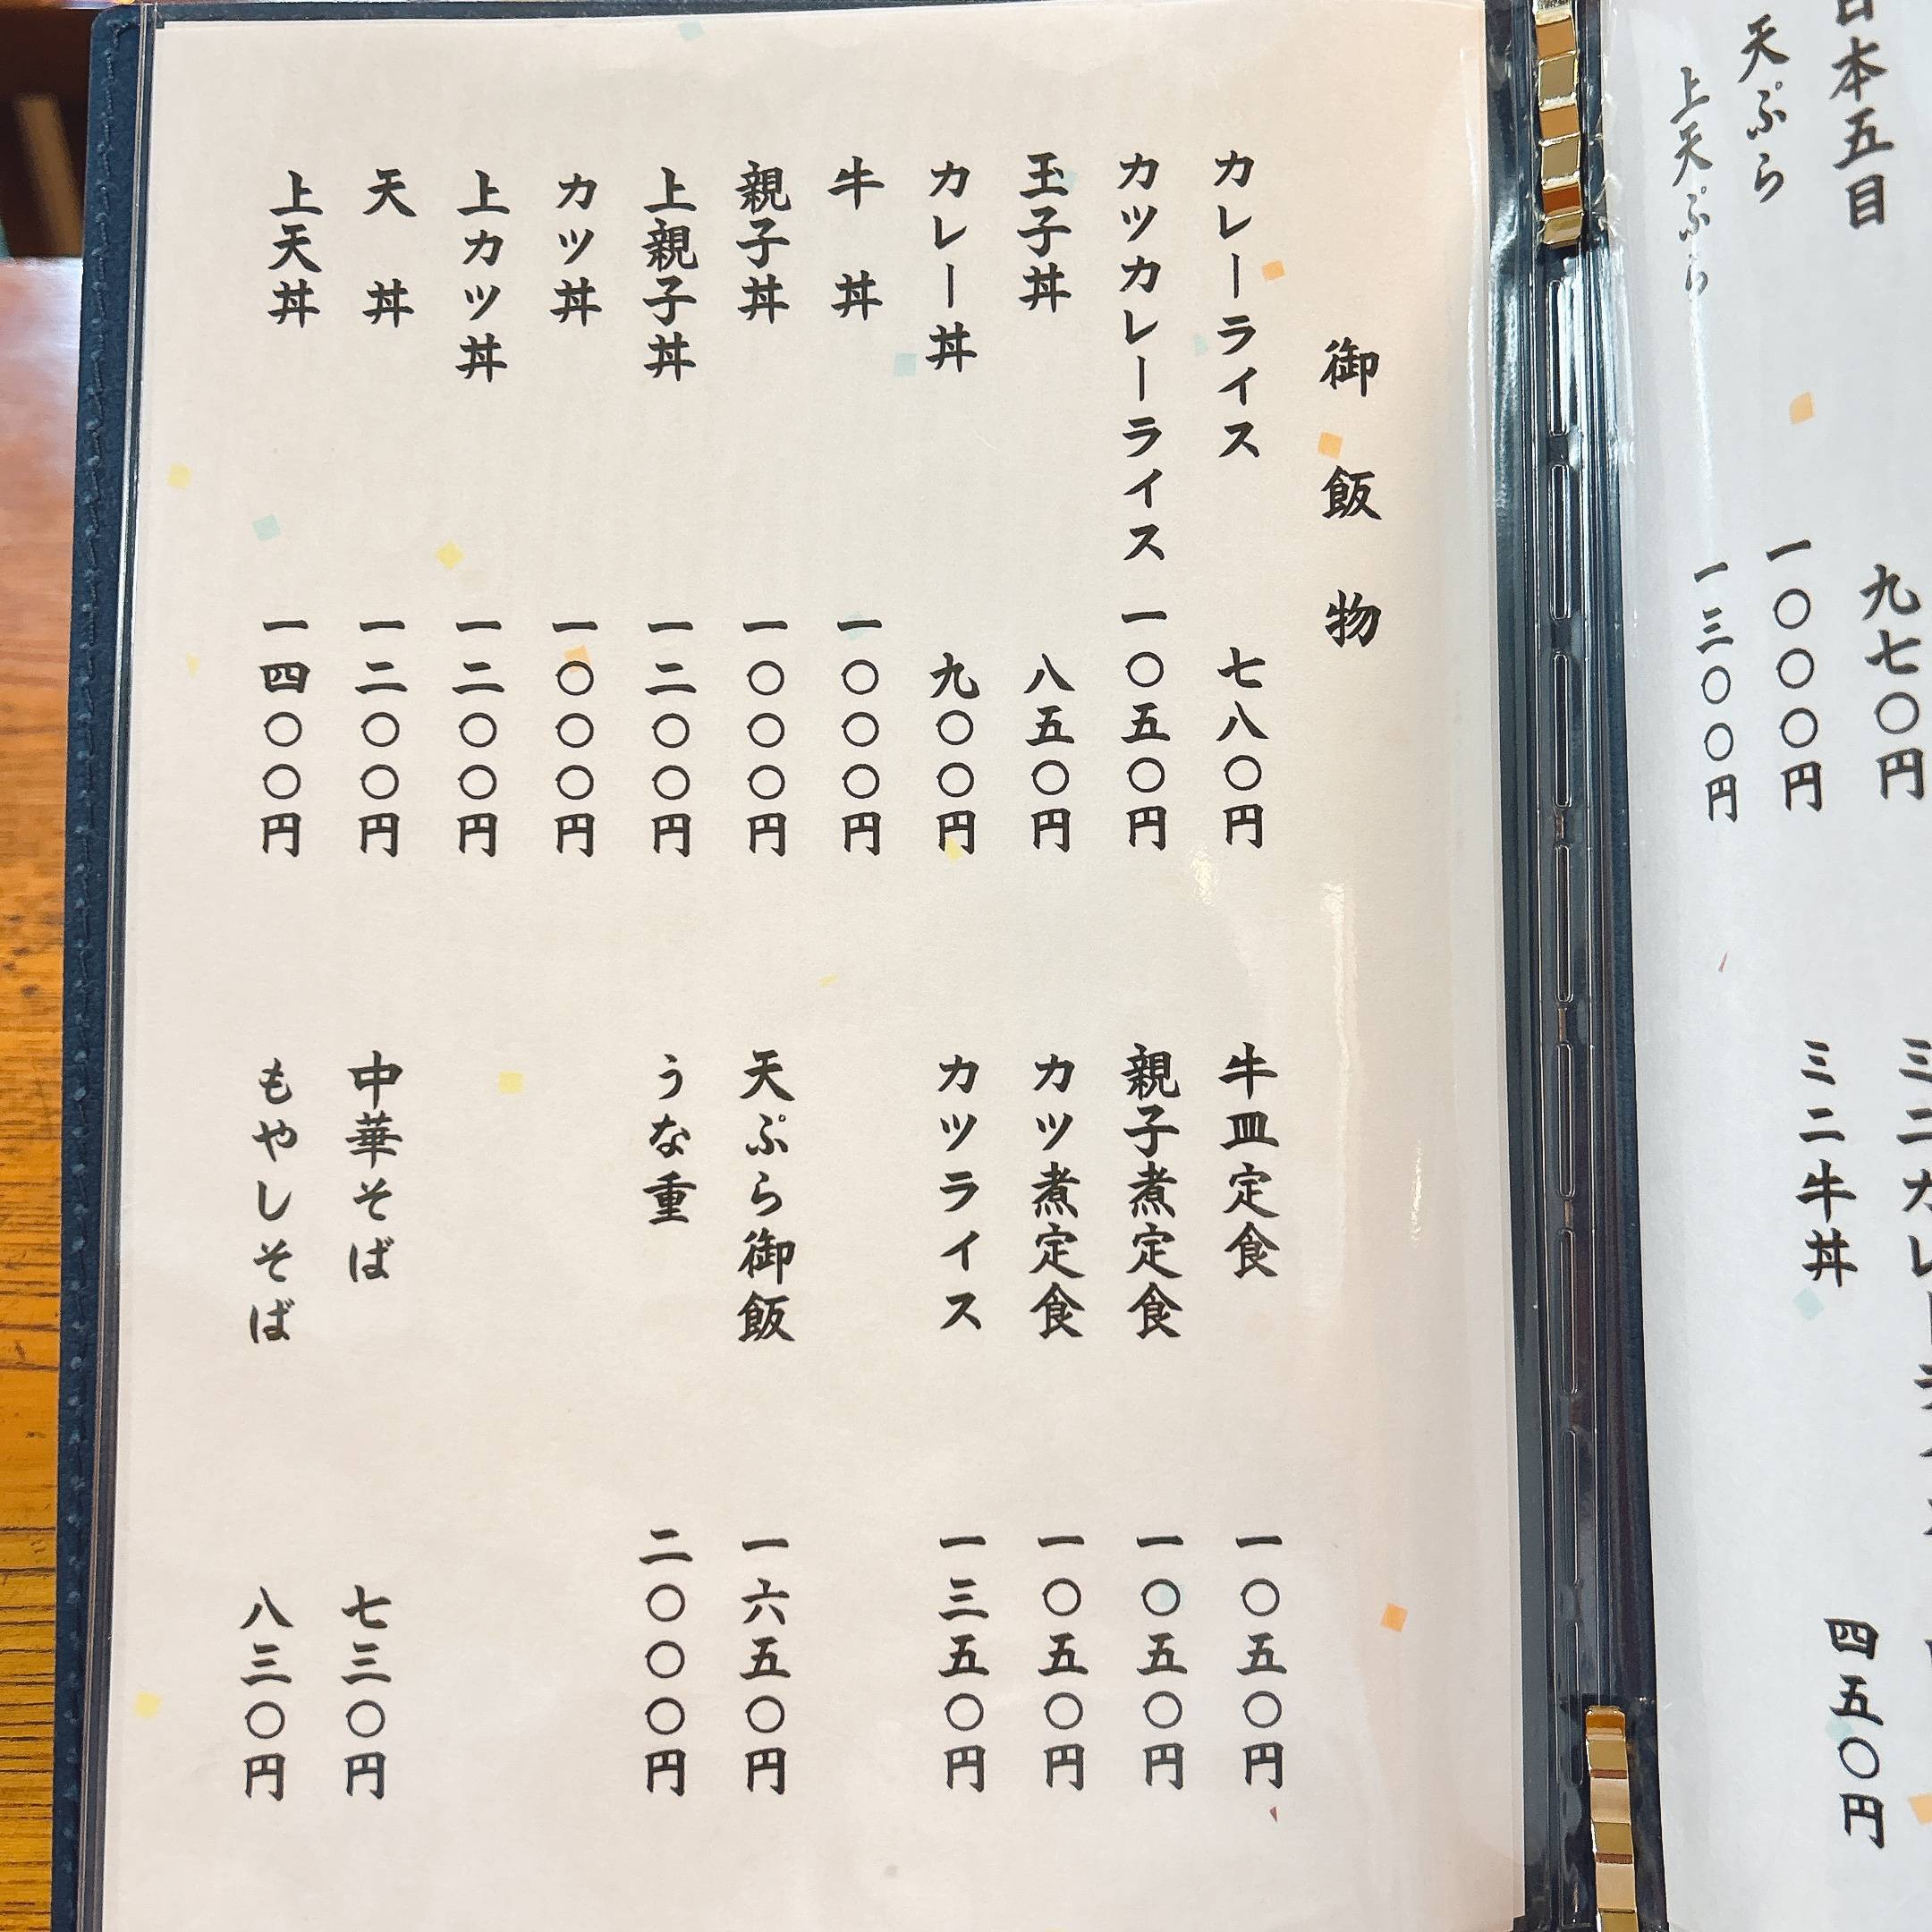 日本五目 九七〇円
天ぷら 一〇〇〇円
上天ぷら 一三〇〇円
ミニ牛丼 四五〇円
御飯物
カレーライス 七八〇円
カツカレーライス 一〇五〇円
玉子丼 八五〇円
カレー丼 九〇〇円
牛丼 一〇〇〇円
親子丼 一〇〇〇円
上親子丼 一二〇〇円
カツ丼 一〇〇〇円
上カツ丼 一二〇〇円
天丼 一二〇〇円
上天丼 一四〇〇円
牛皿定食 一〇五〇円
親子煮定食 一〇五〇円
カツ煮定食 一〇五〇円
カツライス 一三五〇円
天ぷら御飯 一六五〇円
うな重 二〇〇〇円
中華そば 七三〇円
もやしそば 八三〇円